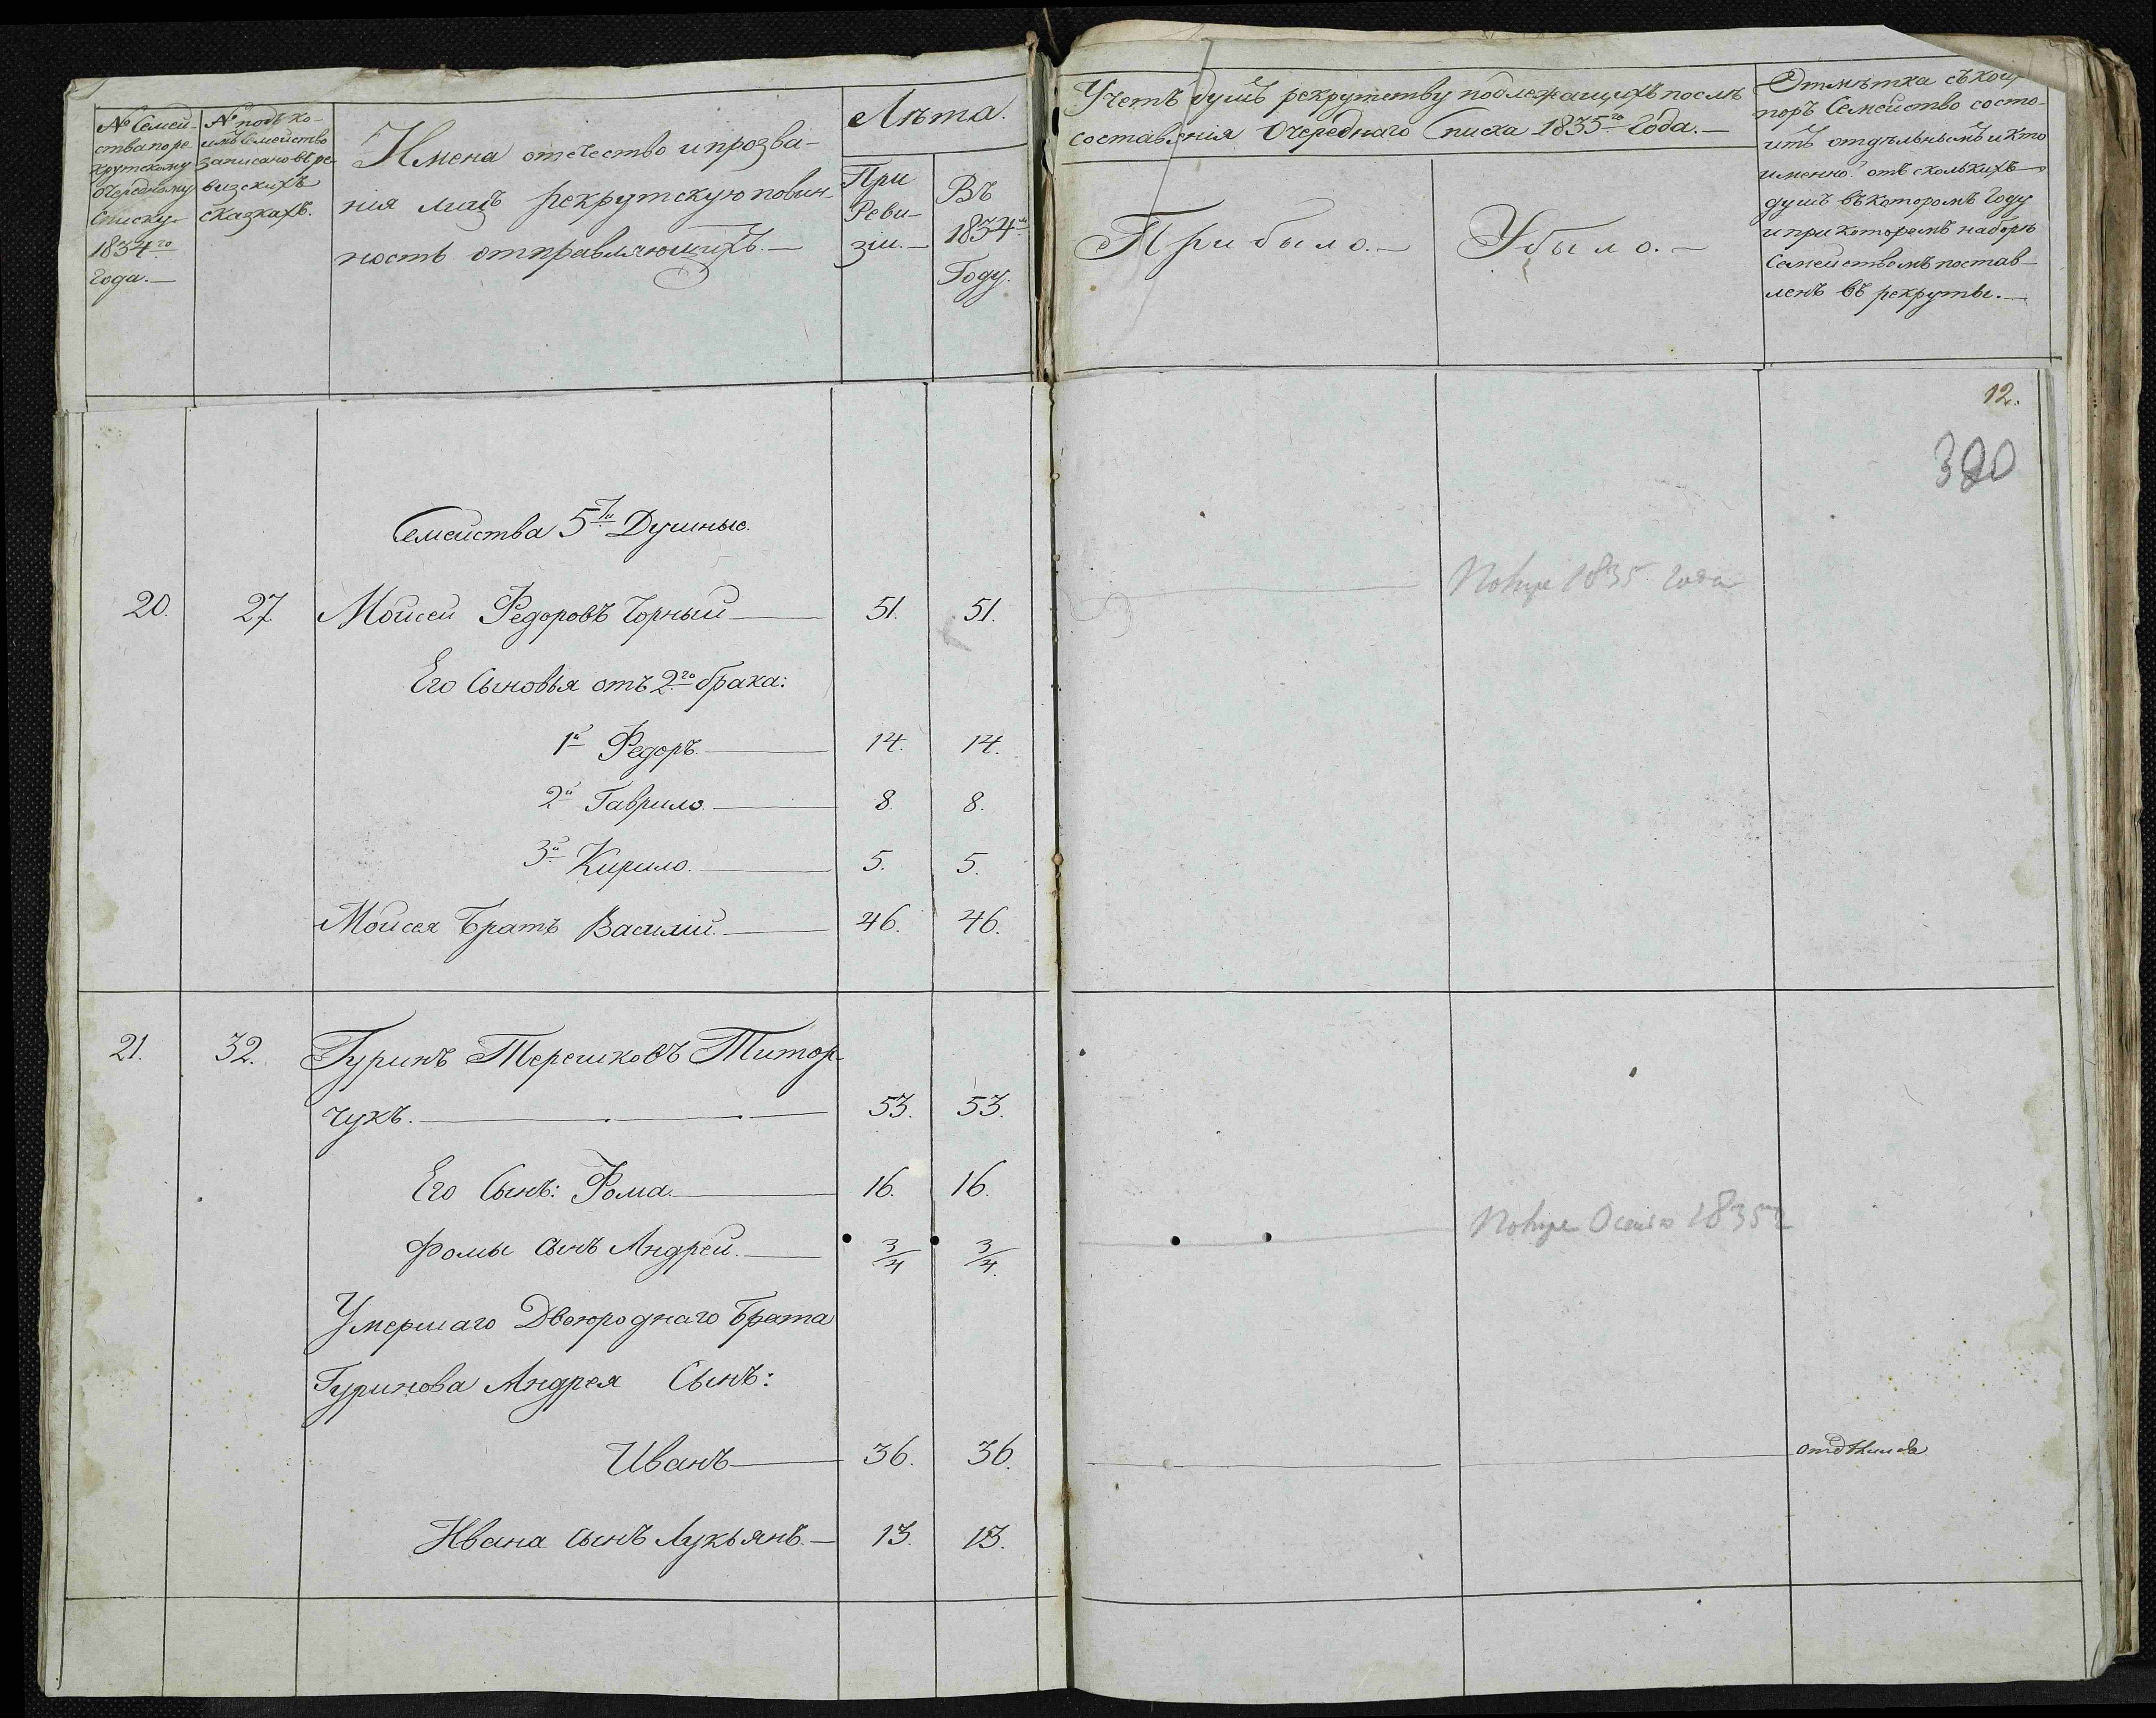 № Семей-
ства по ре-
крутскому
Очередному
Списку
1834го
Года.—
№ подъ ко-
имъ Семейство
записано въ ре-
визскихъ
сказкахъ.
Имена отечество и прозва-
нія лицъ рекрутскую повин-
ность отправляющихъ.—
Лѣта.
При
Реви-
зіи.—
Въ
1834м
Году.
Учетъ душъ рекрутству подлежащихъ послѣ
составленія Очереднаго Списка 1835го Года.—
Прибыло.—
Убыло.—
Отмѣтка съ кои
поръ Семейство состо-
итъ отдѣльнымъ и кто
именно. отъ сколькихъ
душъ въ которомъ Году
и при которомъ наборѣ
Семействомъ постав-
ленъ въ рекруты.—
12.
380
Семейства 5ти Душные.
20. 27 Мойсей Федоровъ Чорный — 51. 51.
1835 года
Его Сыновья отъ 2го брака:
1й Федоръ. — 14. 14.
2й Гаврило. — 8. 8.
3й Кирило. — 5. 5.
Мойсея Братъ Василій. — 46. 46.
21. 32. Гуринъ Терешковъ Титор-
чукъ. — 53. 53.
Его Сынъ: Фома. — 16. 16.
Фомы сынъ Андрей. — 3/4 3/4.
Осенью 1835 г
Умершаго Двоюроднаго Брата
Гуринова Андрея Сынъ:
Иванъ — 36. 36. отдѣлился
Ивана сынъ Лукьянъ. — 13. 13.